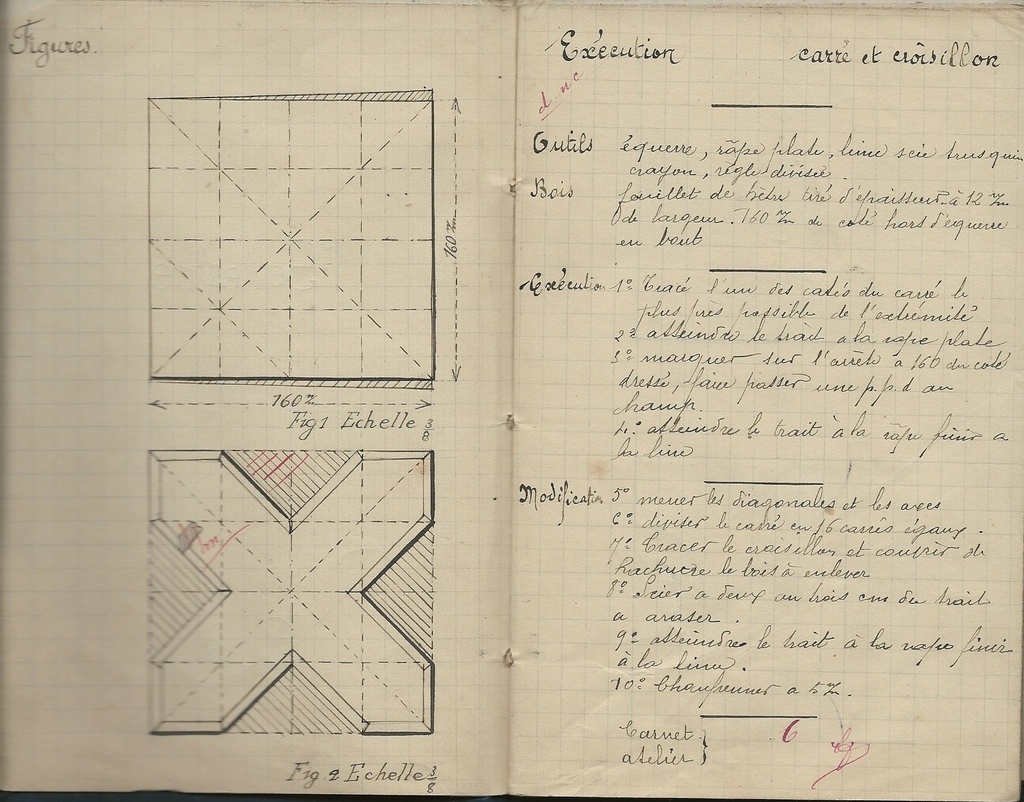 Figures.
160 m/m
160 m/m
Fig 1 Echelle 3/8
Fig 2 Echelle 3/8
Exécution carré et croisillon
Outils équerre, râpe plate, lime scie trusquin
crayon, règle divisée.
Bois feuillet de hêtre tiré d'épaisseur à 12 m/m
de largeur. 160 m/m de coté hors d'équerre
en bout
Exécution 1° Tracé l'un des cotés du carré le
plus près possible de l'extrémité
2° atteindre le trait a la rape plate
3° marquer sur l'arrête a 160 du coté
dressé, faire passer une p.p.d au
champ.
4° atteindre le trait à la râpe finir a
la lime
Modification 5° mener les diagonales et les axes
6° diviser le carré en 16 carrés égaux.
7° Tracer le croisillon et couvrir de
hachure le bois à enlever
8° Scier a deux ou trois cm du trait
a araser.
9° atteindre le trait à la rape finir
à la lime.
10° Chanfreiner a 5 m/m.
Carnet 6
atelier